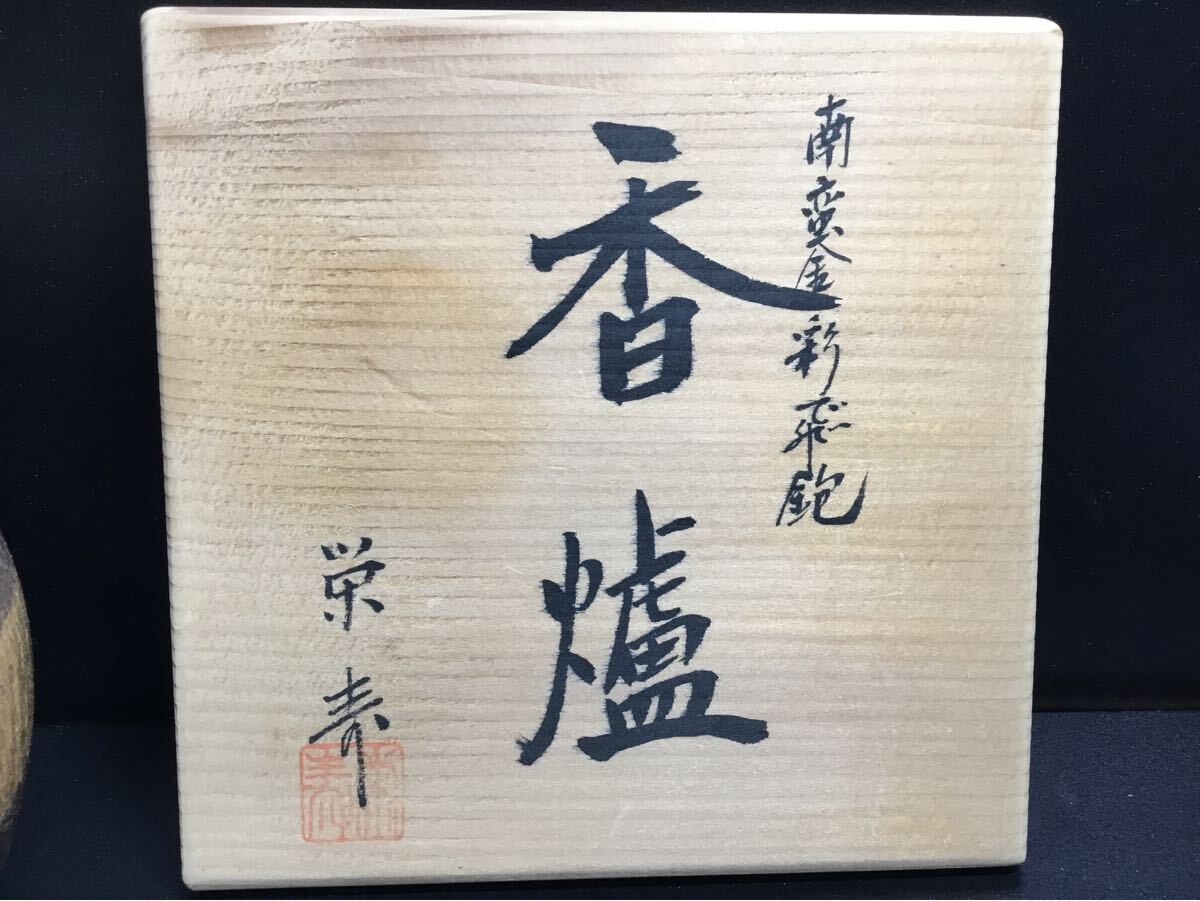 南蛮金彩飛鉋
香爐
栄寿